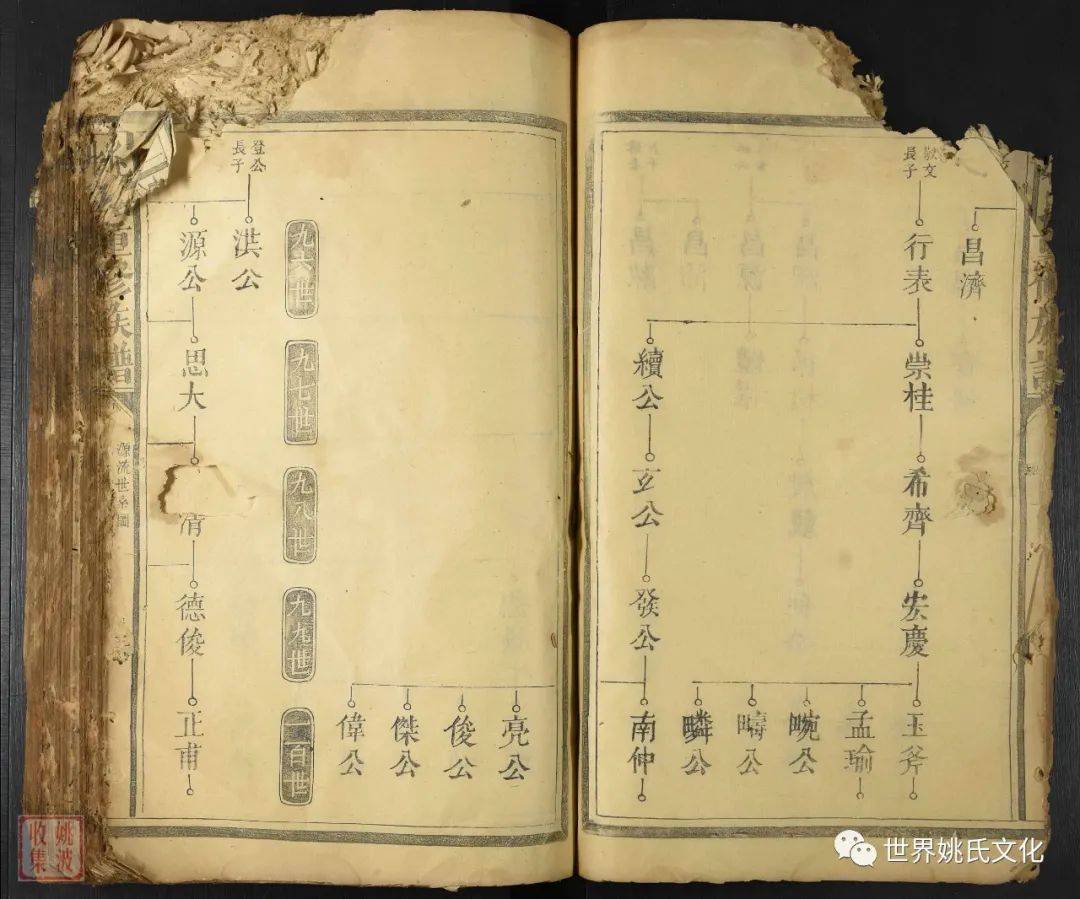 昌濟
敬文
長子
行表
崇桂
希齊
宏慶
玉斧
孟瑜
畹公
疇公
疄公
續公
玄公
發公
南仲
亮公
俊公
傑公
偉公
九六世
九七世
九八世
九九世
一百世
登公
長子
洪公
源公
思大
清
德俊
正甫
重修族譜
源流世系圖
姚波
收集
世界姚氏文化